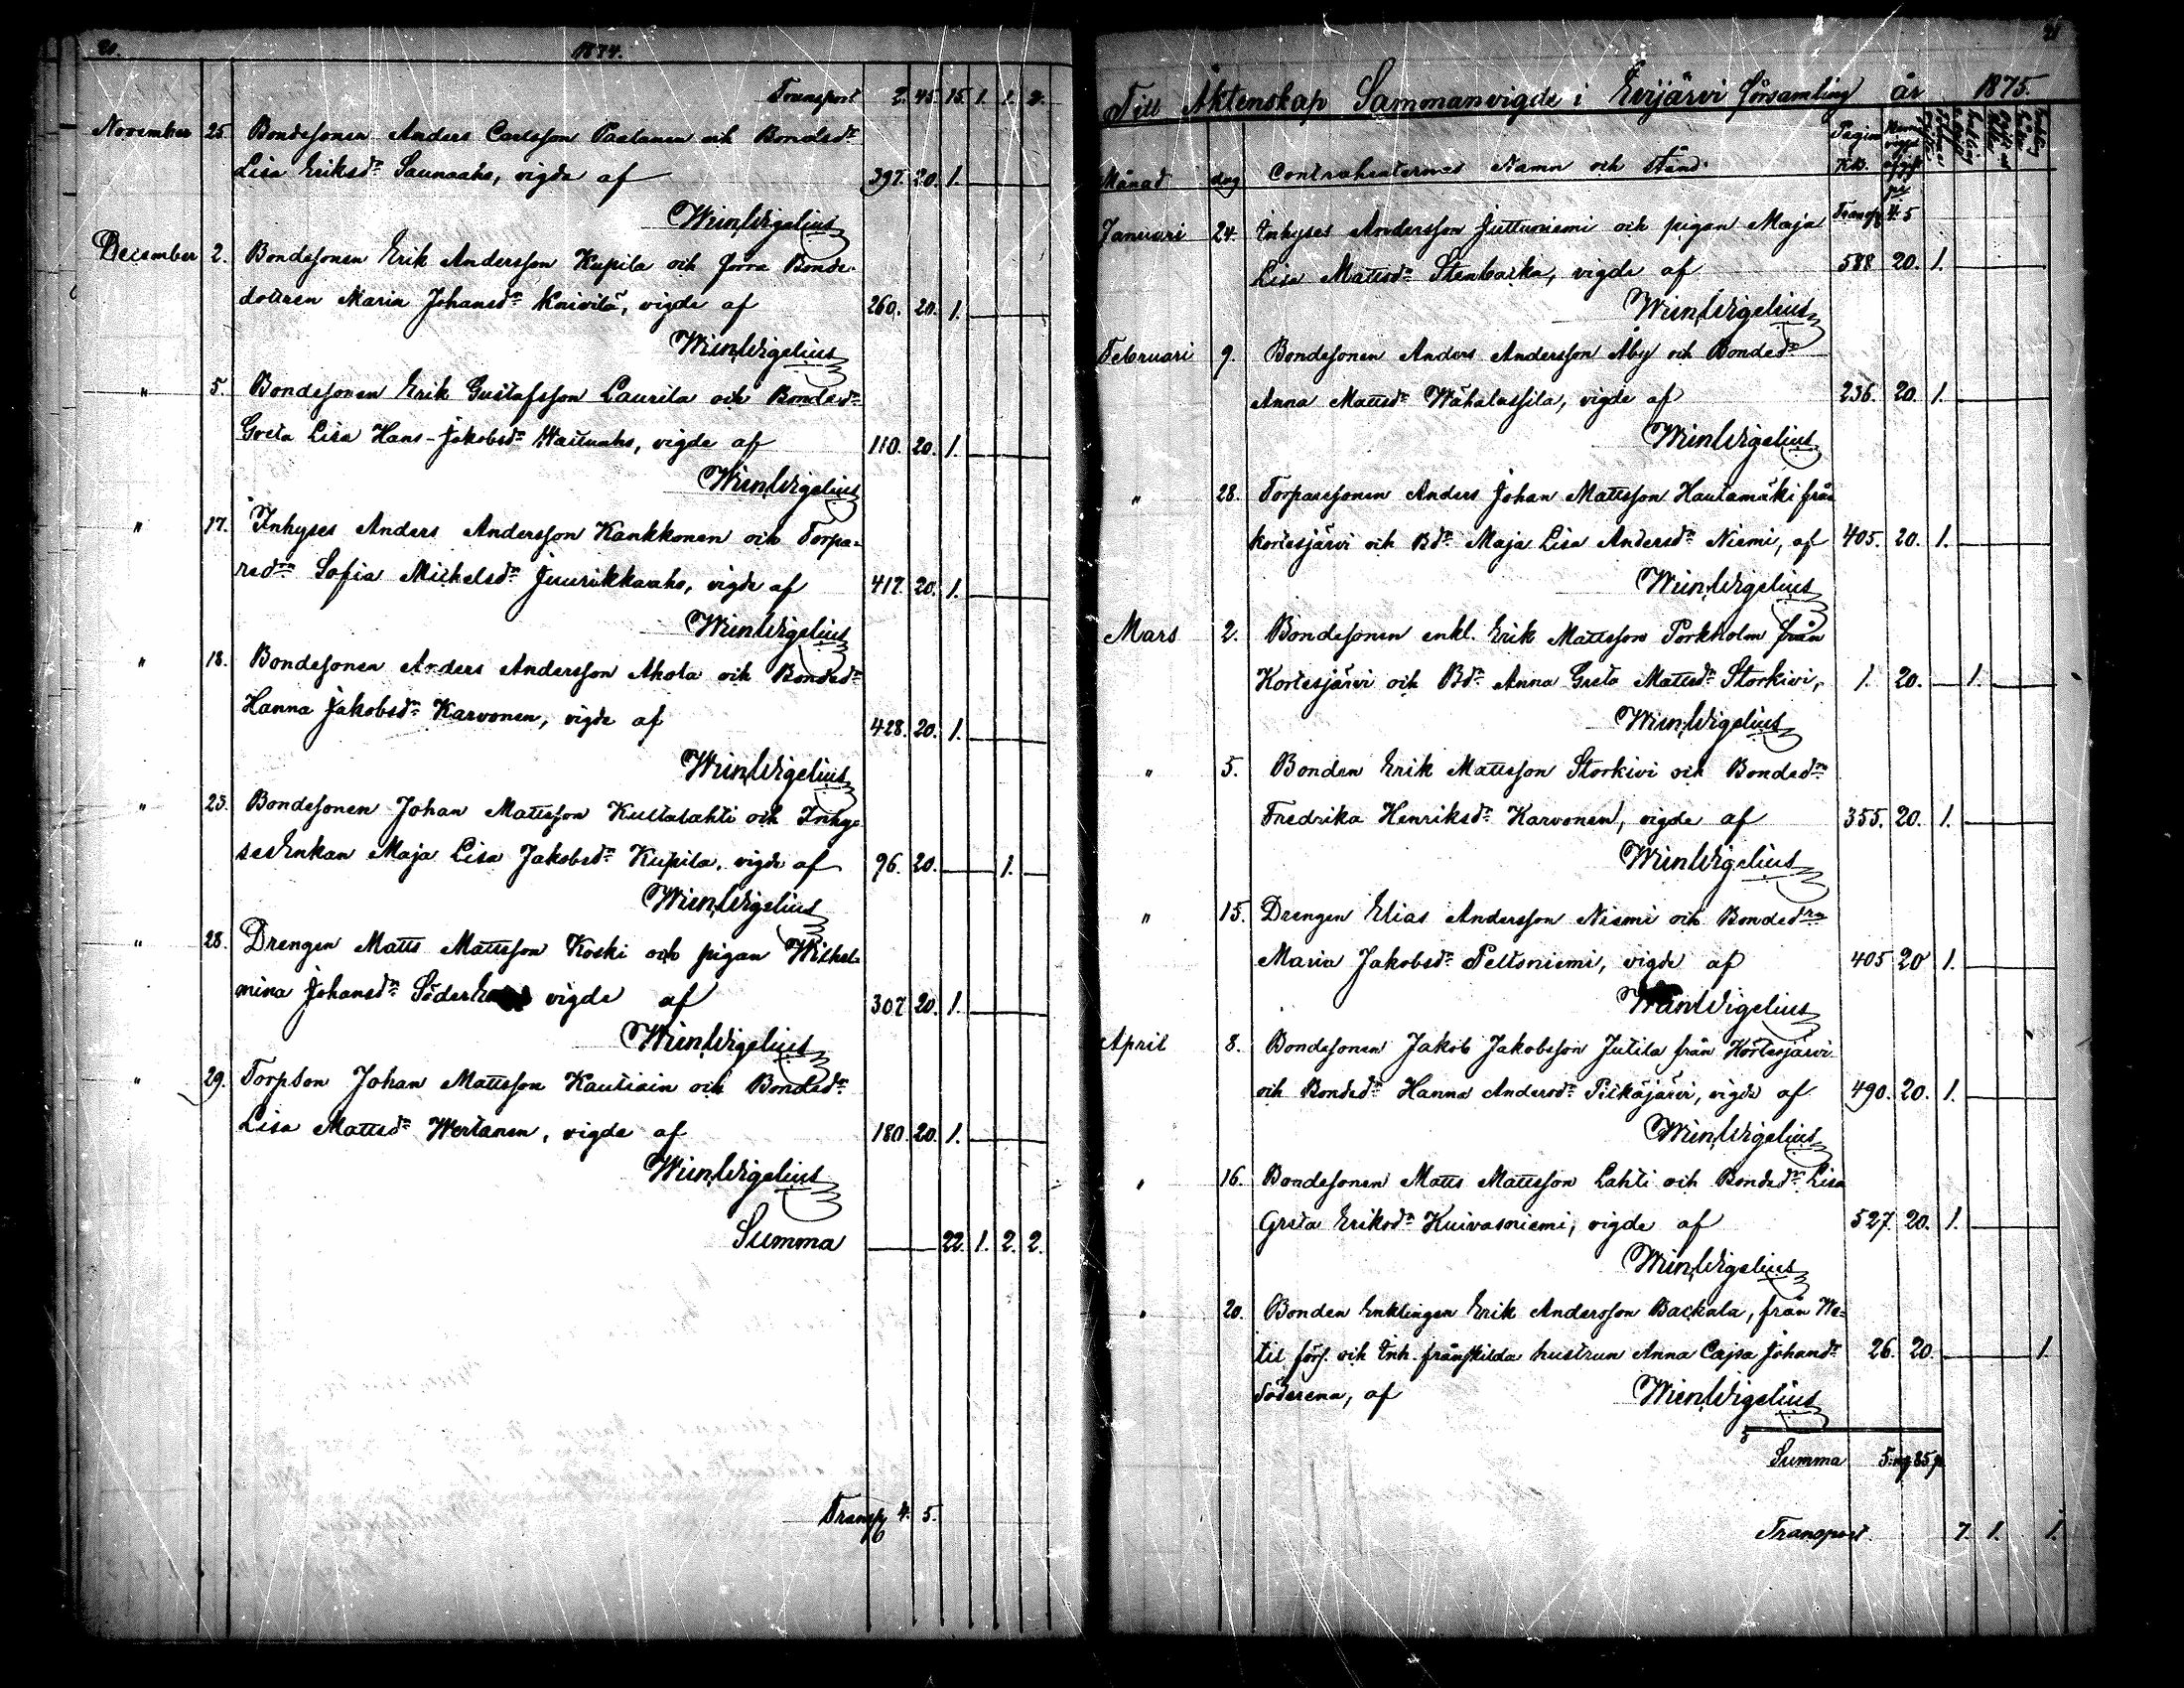 20.
1874.
Transport 2. 45. 15. 1. 1. 2.
November 25. Bondesonen Anders Carlsson Pastanen och Bondedr
Lisa Eriksdr Saunaaho, vigde af 397. 20. 1.
Wim Wigelius
December 2. Bondesonen Erik Andersson Kupila och förra Bonde-
dottren Maria Johansdr Knivilä, vigde af 260. 20. 1.
Wim Wigelius
" 5. Bondesonen Erik Gustafsson Laurila och Bondedr
Greta Lisa Hans-Jakobsdr Wattuaho, vigde af 110. 20. 1.
Wim Wigelius
" 17. Inhyses Anders Andersson Kankkonen och Torpa-
redrn Sofia Michelsdr Juurikkaaho, vigde af 417. 20. 1.
Wim Wigelius
" 18. Bondesonen Anders Andersson Ahola och Bondedr
Hanna Jakobsdr Karvonen, vigde af 428. 20. 1.
Wim Wigelius
" 25. Bondesonen Johan Mattsson Kultalahti och Inhy-
sesEnkan Maja Lisa Jakobsdr Kupila, vigde af 96. 20. 1.
Wim Wigelius
" 28. Drengen Matts Mattsson Koski och pigan Wilhel-
mina Johansdr vigde af 307 20. 1.
Wim Wigelius
" 29. Torpson Johan Mattsson Kautiain och Bondedr
Lisa Mattsdr Wertanen, vigde af 180. 20. 1.
Wim Wigelius
Summa 22. 1. 2. 2.
Transp 4. 5.
21
Till Äktenskap Sammanvigde i Evijärvi församling år 1875.
Månad dag Contrahenternes Namn och stånd. Pagina KB.
Transp 4. 5
Januari 24. Inhyses Andersson Juttuniemi och pigan Maja
Lisa Mattsdr Stenbacka, vigde af 588 20. 1.
Wim Wigelius
Februari 9. Bondesonen Anders Andersson Åby och Bondedr
Anna Mattsdr Wähälassila, vigde af 236. 20. 1.
Wim Wigelius
" 28. Torparesonen Anders Johan Mattsson Hautamäki från
Kortesjärvi och Bdr Maja Lisa Andersdr Niemi, af 405. 20. 1.
Wim Wigelius
Mars 2. Bondesonen enkl. Erik Mattsson Porkholm från
Kortesjärvi och Bdr Anna Greta Mattsdr Storkivi, 1. 20. 1.
Wim Wigelius
" 5. Bonden Erik Mattsson Storkivi och Bondedrn
Fredrika Henriksdr Karvonen, vigde af 355. 20. 1.
Wim Wigelius
" 15. Drengen Elias Andersson Niemi och Bondedrn
Maria Jakobsdr Peltoniemi, vigde af 405 20 1.
Wim Wigelius
April 8. Bondesonen Jakob Jakobsson Jutila från Kortesjärvi
och Bondedr Hanna Andersdr Pitkäjärvi, vigde af 490. 20. 1.
Wim Wigelius
" 16. Bondesonen Matts Mattsson Lahti och Bondedrn Lisa
Greta Eriksdr Kuivasniemi, vigde af 527. 20. 1.
Wim Wigelius
" 20. Bonden Enklingen Erik Andersson Backala, från We-
til förs. och Inh. frånskilda hustrun Anna Cajsa Johansdr 26. 20. 1.
Söderena, af Wim Wigelius
Summa 5 m 85 p
Transport 7. 1. 1.